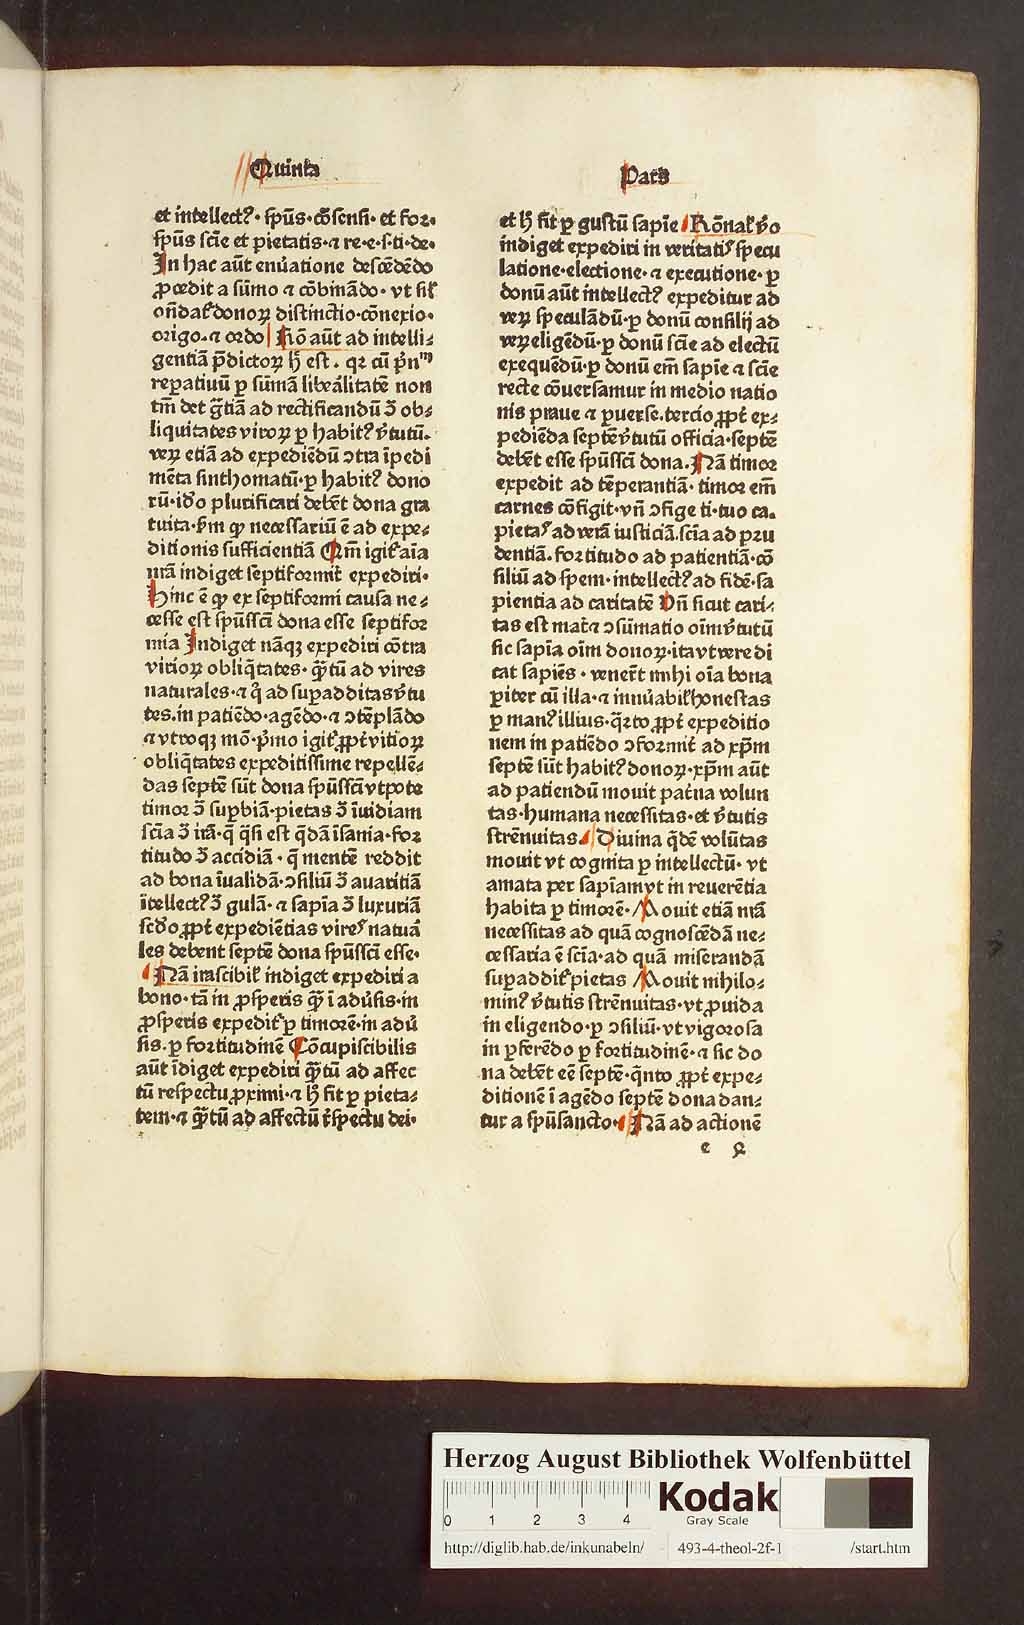 Quinta
et intellectꝰ · sp̄us · cōsensi · et for·
sp̄us scīe et pietatis · ⁊ re · e · s · ti · de ·
In hac aūt enūatione descēdēdo
ꝓcedit a sūmo ⁊ cōbinādo · vt sil̄
on̄dat̄ donoꝝ distinctio · cōnexio ·
origo · ⁊ ordo Rō aūt ad intelli⸗
gentiā p̄dictoꝝ hꝭ est · qꝛ cū p̄in
reꝑatiuū ꝑ sūmā libeālitatē non
tm̄ det gr̄tiā ad rectificandū ↄ̄ ob⸗
liquitates vitoꝝ ꝑ habitꝰ v̄tutū ·
veꝝ etiā ad expediēdū ↄtra īpedi
mēta sinthomatū · ꝑ habitꝰ dono
rū · iđo plurificari debēt dona gra
tuita · ẜm ꝙ necessariū ē ad expe⸗
ditionis sufficientiā Qm̄ igit̄ aīa
nr̄a indiget septiformit̄ expediri ·
Hinc ē ꝙ ex septiformi causa ne⸗
cesse est sp̄ussc̄i dona esse septifor
mia Indiget nāqꝫ expediri cōtra
vitioꝝ obliq̄tates · qr̄tū ad vires
naturales · ⁊ q̄ ad suꝑadditas v̄tu
tes · in patiēdo · agēdo · ⁊ ↄtēplādo
⁊ vtroqꝫ mō · p̄mo igit̄ ꝓpt̄ vitioꝝ
obliq̄tates expeditissime repellē⸗
das septē sūt dona sp̄ussc̄i vtpote
timor ↄ̄ suꝑbiā · pietas ↄ̄ īuidiam
scīa ↄ̄ irā · q̄ q̄si est q̄dā īsania · for
titudo ↄ̄ accidiā · q̄ mentē reddit
ad bona īualidā · ↄsiliū ↄ̄ auaritiā
ītellectꝰ ↄ̄ gulā · ⁊ sapīa ↄ̄ luxuriā
scđo ꝓpt̄ expediētias vireꝭ natuā
les debent septē dona sp̄ussc̄i esse ·
Nā irascibil̄ indiget expediri a
bono · tā in ꝓsperis qr̄ ī adūsis · in
ꝓsperis expedit̄ ꝑ timorē · in adū
sis · ꝑ fortitudinē Cōcupiscibilis
aūt īdiget expediri qr̄tū ad affec
tū respectu ꝓximi · ⁊ hꝭ fit ꝑ pieta⸗
tem · ⁊ qr̄tū ad affectū r̄spectu dei ·
Pars
et hꝭ fit ꝑ gustū sapīe Rōnal̄ v̄o
indiget expediri in veritatiꝭ specu
latione · electione · ⁊ executione · ꝑ
donū aūt intellectꝰ expeditur ad
veꝝ speculādū · ꝑ donū consilij ad
veꝝ eligēdū · ꝑ donū scīe ad electū
exequēdū · ꝑ donū em̄ sapīe ⁊ scīe
recte cōuersamur in medio natio
nis praue ⁊ ꝑuerse · tercio ꝓpt̄ ex⸗
pediēda septē v̄tutū officia · septē
debēt esse sp̄ussc̄i dona · Nā timor
expedit ad tēperantiā · timor em̄
carnes cōfigit · vn̄ ↄfige ti · tuo ca ·
pietaꝭ ad verā iusticiā · scīa ad pru
dentiā · fortitudo ad patientiā · cō
siliū ad spem · intellectꝰ ad fidē · sa
pientia ad caritatē Vn̄ sicut cari⸗
tas est mat̄ ⁊ ↄsūmatio oīm v̄tutū
sic sapīa oīm donoꝝ · ita vt vere di
cat sapiēs · venert̄ mihi oīa bona
ꝑiter cū illa · ⁊ innūabil̄ honestas
ꝑ manꝰ illius · q̄rto ꝓpt̄ expeditio
nem in patiēdo ↄformit̄ ad xp̄m
septē sūt habitꝰ donoꝝ · xp̄m aūt
ad patiendū mouit pat̄na volun
tas · humana necessitas · et v̄tutis
strēnuitas · Diuina q̄dē volūtas
mouit vt cognita ꝑ intellectū · vt
amata per sapīam vt in reuerētia
habita ꝑ timorē · Mouit etiā nr̄ā
necessitas ad quā cognoscēdā ne⸗
cessaria ē scīa · ad quā miserandā
suꝑaddit̄ pietas Mouit nihilo⸗
minꝰ v̄tutis strēnuitas · vt ꝓuida
in eligendo · ꝑ ↄsiliū · vt vigorosā
in ꝑferēdo ꝑ fortitudinē · ⁊ sic do
na debēt eē septē · q̄nto ꝓpt̄ expe⸗
ditionē ī agēdo septē dona dan⸗
tur a sp̄usancto · Nā ad actionē
e
Herzog August Bibliothek Wolfenbüttel
0 1 2 3 4
Kodak
Gray Scale
http://diglib.hab.de/inkunabeln/ 493-4-theol-2f-1 /start.htm